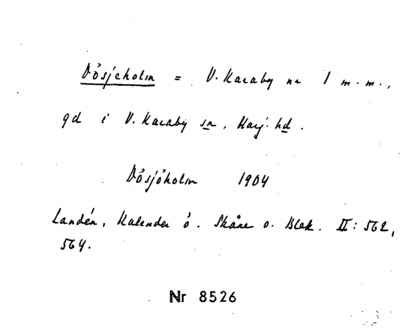 Dösjeholm = V. Karaby nr 1 m.m.,
gd i V. Karaby sn, Harj. hd.
Dösjöholm 1904
Landén, Kalender ö. Skåne o. Blek. II: 562,
564.
Nr 8526